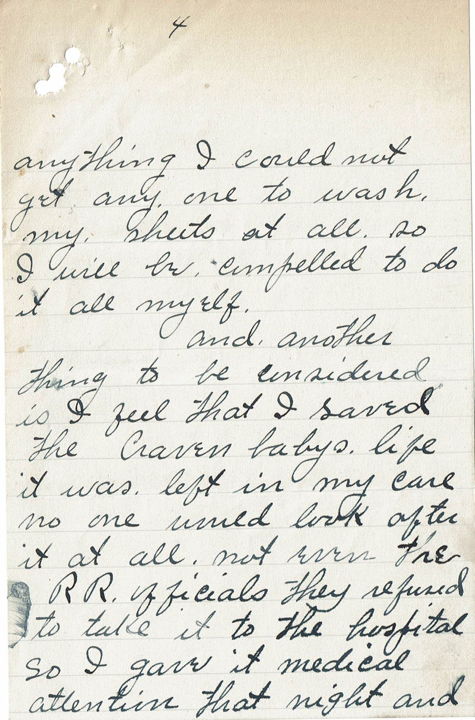 4
anything I could not
get any. one to wash.
my. sheets at all. so
I will be. compelled to do
it all myself.
and. another
thing to be considered
is I feel that I saved
the Craven babys. life
it was. left in my care
no one would look after
it at all. not even the
R R. officials they refused
to take it to the hospital
so I gave it medical
attention that night and